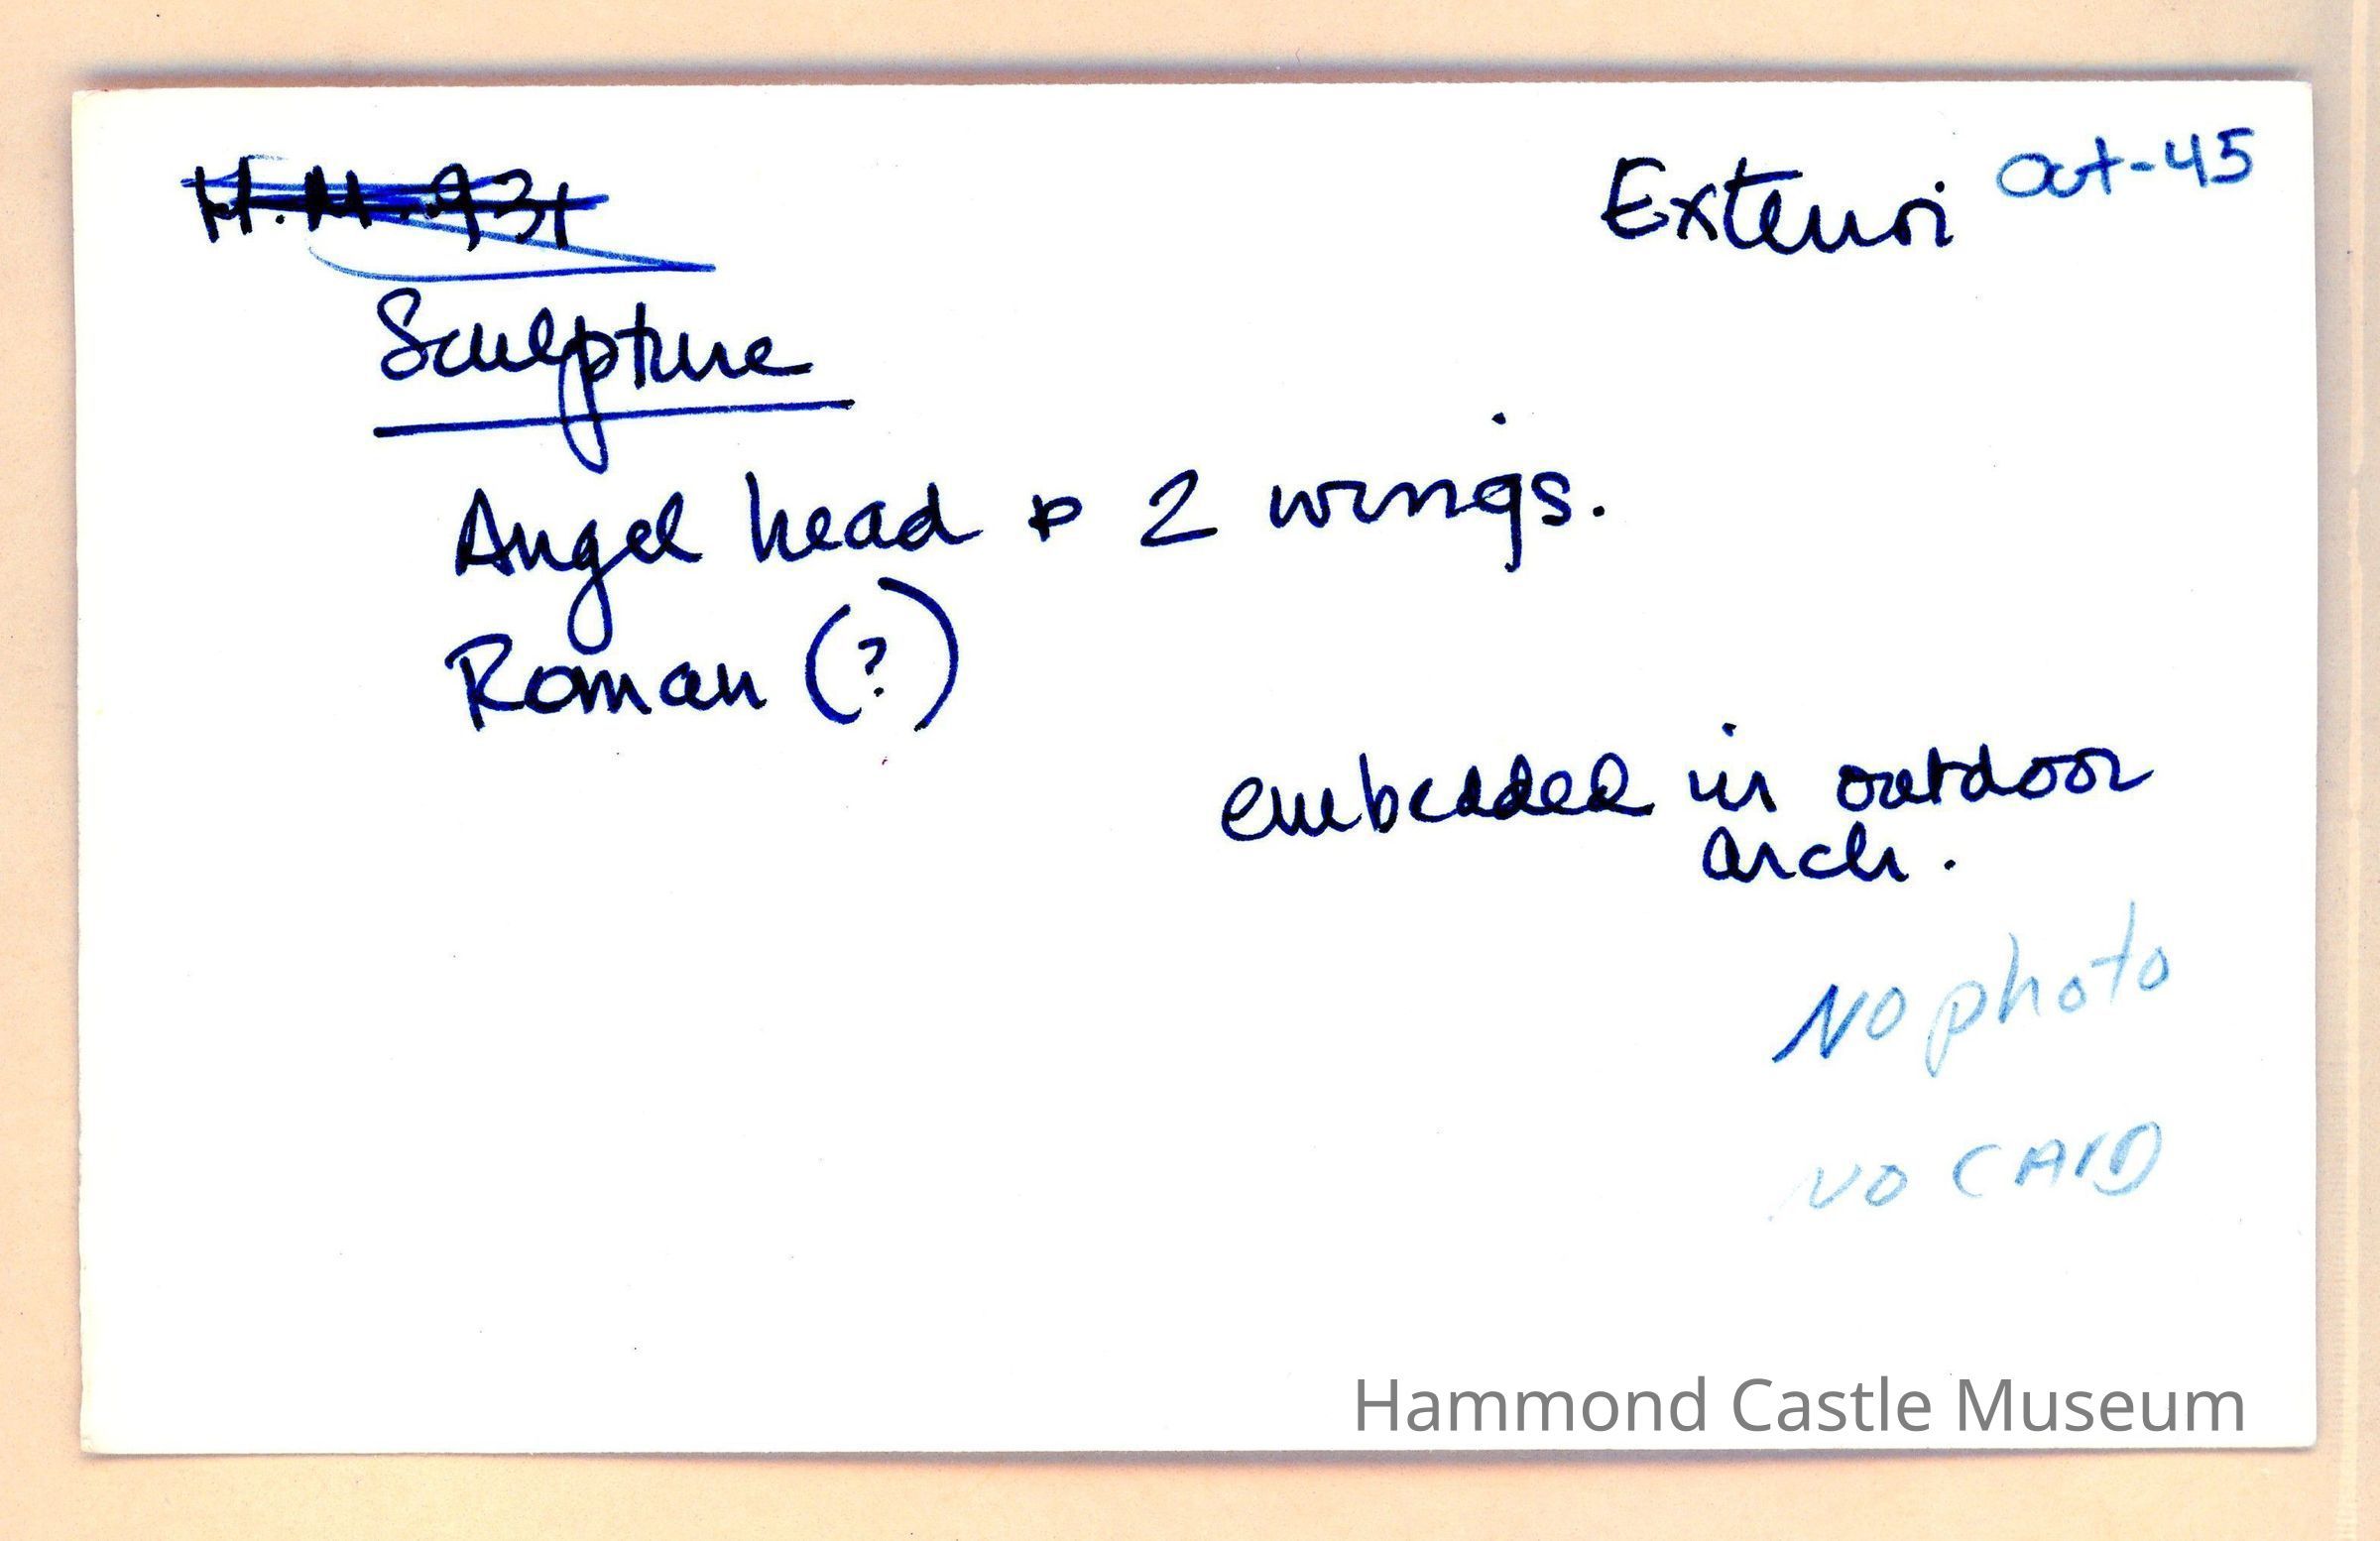 H.M. 931
Exterior out-45
Sculpture
Angel head & 2 wings.
Roman (?)
embedded in outdoor
arch.
NO photo
NO CARD
Hammond Castle Museum